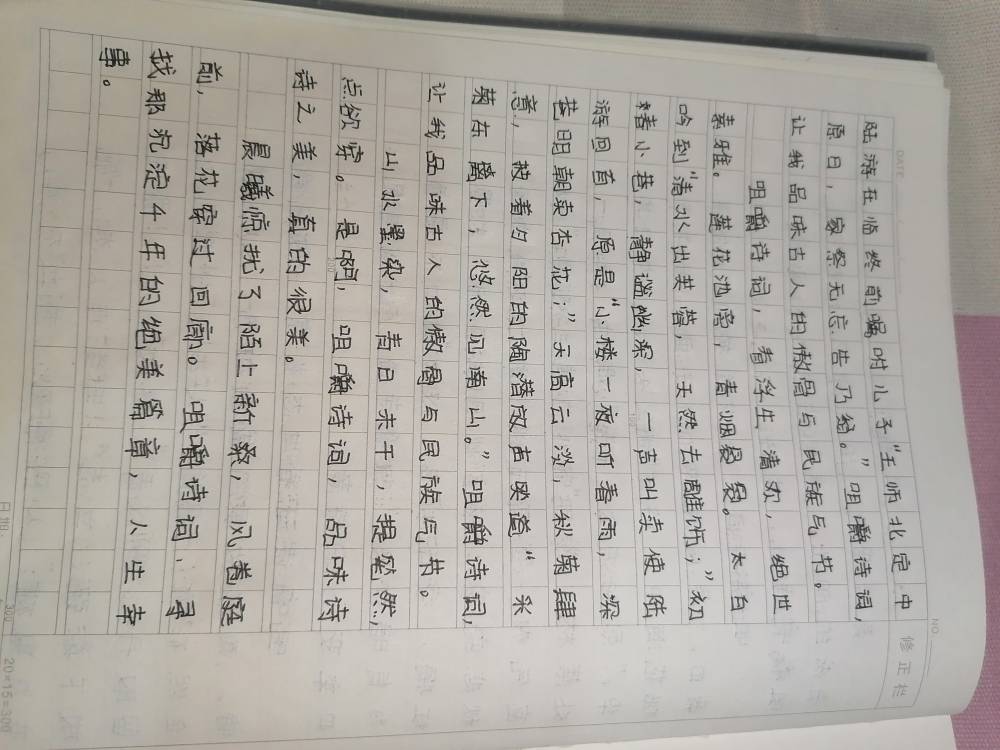 DATE
NO.
修正栏
陆游在临终前嘱咐儿子“王师北定中
原日，家祭无忘告乃翁。”咀嚼诗词，
让我品味古人的傲骨与民族气节。
咀嚼诗词，看浮生清欢，绝世
素雅。莲花池旁，青烟袅袅。太白
吟到“清水出芙蓉，天然去雕饰；”初
春小巷，静谧幽深，一声叫卖使陆
游回首，愿是“小楼一夜听春雨，深
巷明朝卖杏花；”天高云淡，秋菊肆
意，披着夕阳的陶潜放声笑道“采
菊在篱下，悠然见南山。”咀嚼诗词，
让我品味古人的傲骨与民族气节。
山水墨染，青日未干，提笔然，
点欲穿。是啊，咀嚼诗词，品味诗
诗之美，真的很美。
晨曦惊扰了陌上新桑，风卷庭
前，落花穿过回廊。咀嚼诗词，寻
找那沉淀千年的绝美篇章，人生幸
事。
日期:
300
20×15=300